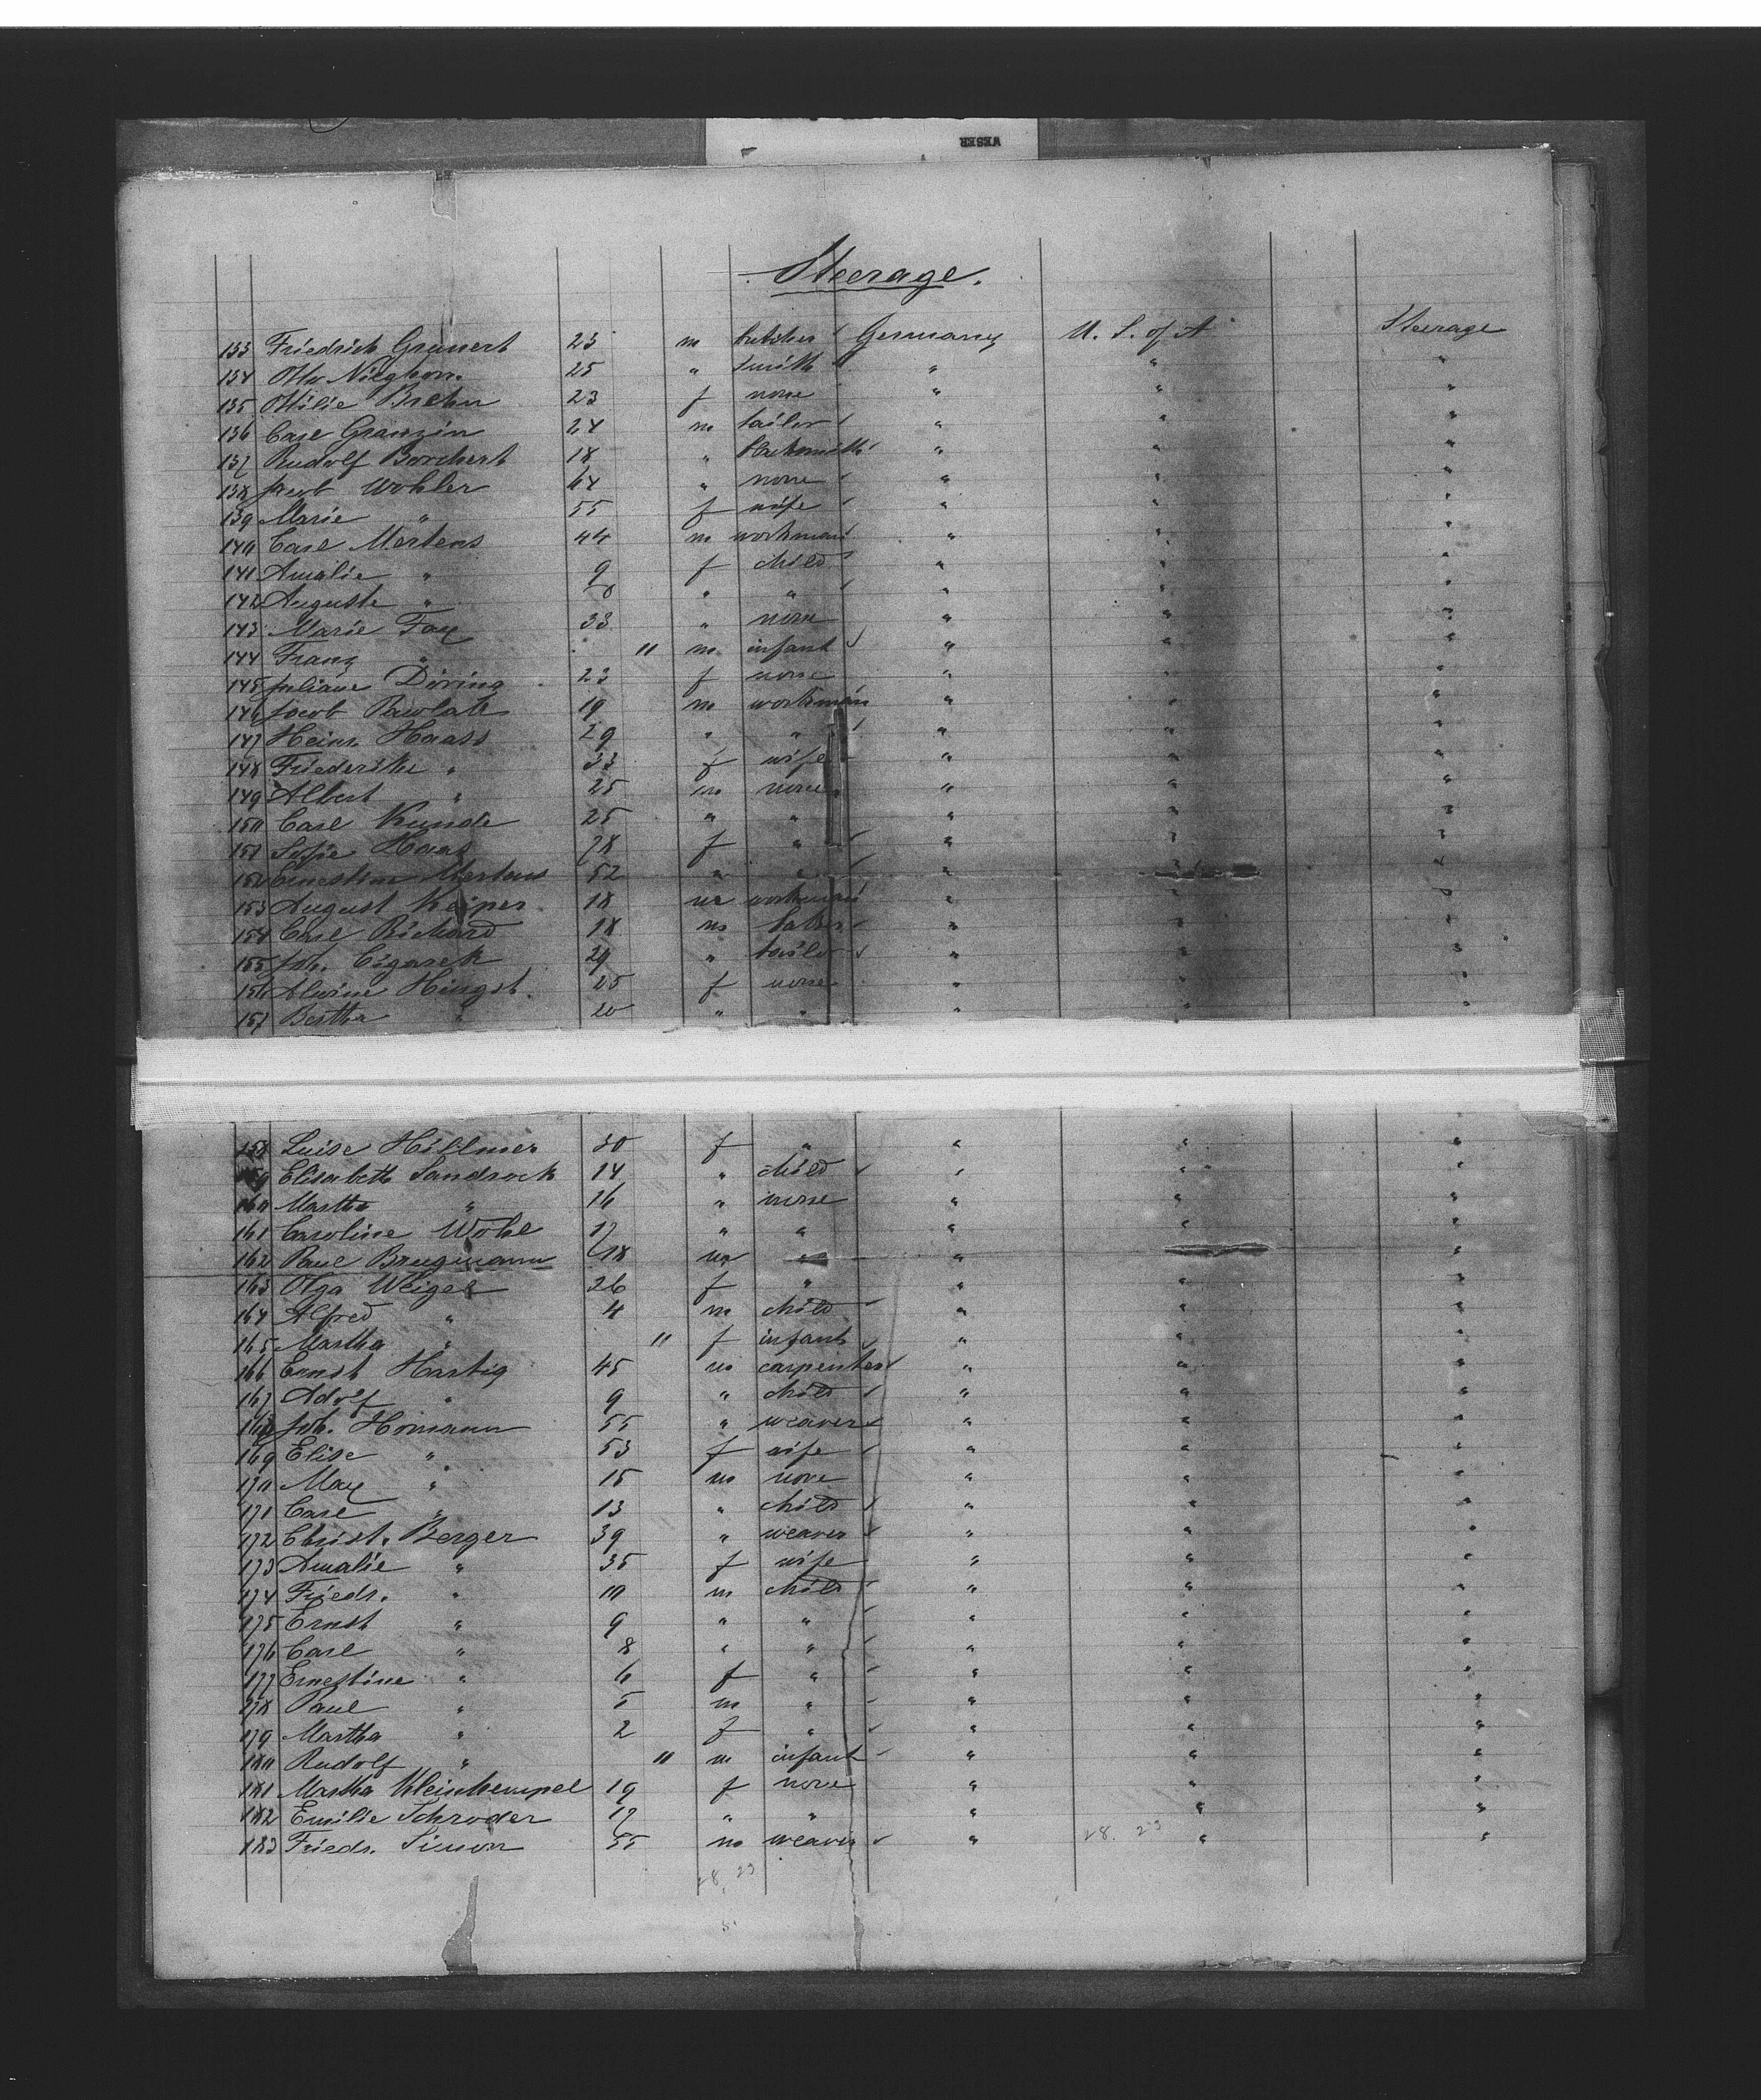 WESER
Steerage.
133 Friedrich Grunert 23 m butcher Germany U. S. of A Steerage
134 Otto Nieghorn 25 " smith " " "
135 Ottilie Brehm 23 f none " " "
136 Carl Granzin 24 m tailor " " "
137 Rudolf Borchert 18 " blacksmith " " "
138 Jacob Wohler 64 " none " " "
139 Marie " 55 f wife " " "
140 Carl Mertens 44 m workman " " "
141 Amalie " 9 f child " " "
142 Auguste " " " " " "
143 Marie Fox 33 " none " " "
144 Franz " 11 m infant " " "
145 Juliane Döring 23 f none " " "
146 Jacob 19 m workman " " "
147 Heinr. Haass 29 " " " " "
148 Friederike " 33 f wife " " "
149 Albert " 25 m none " " "
150 Carl Kunde 25 " " " " "
151 Sofie Haas 78 f " " " "
152 Ernestine Mertens 52 " " " " "
153 August Keiper 18 m workman " " "
154 Carl Richard 18 m baker " " "
155 Joh. Cigarek 29 " tailor " " "
156 Alwine Hingst 25 f none " " "
157 Bertha " 20 " " " " "
158 Luise Hillmer 30 f " " " "
159 Elisabeth Sandrock 14 " child " " "
160 Martha " 16 " none " " "
161 Caroline Wohl 17 " " " " "
162 Paul Brugmann 18 m " " " "
163 Olga Weigel 26 f " " " "
164 Alfred " 4 m child " " "
165 Martha " 11 f infant " " "
166 Ernst Hartig 45 m carpenter " " "
167 Adolf " 9 " child " " "
168 Joh. Homann 55 " weaver " " "
169 Elise " 53 f wife " " "
170 Max " 15 m none " " "
171 Carl " 13 " child " " "
172 Christ. Berger 39 " weaver " " "
173 Amalie " 35 f wife " " "
174 Friedr. " 10 m child " " "
175 Ernst " 9 " " " " "
176 Carl " 8 " " " " "
177 Ernestine " 6 f " " " "
178 Paul " 5 m " " " "
179 Martha " 2 f " " " "
180 Rudolf " 11 m infant " " "
181 Martha Kleinhempel 19 f none " " "
182 Emilie Schroder 17 " " " " "
183 Friedr. Simon 55 m weaver " 28. 23 " "
28, 23